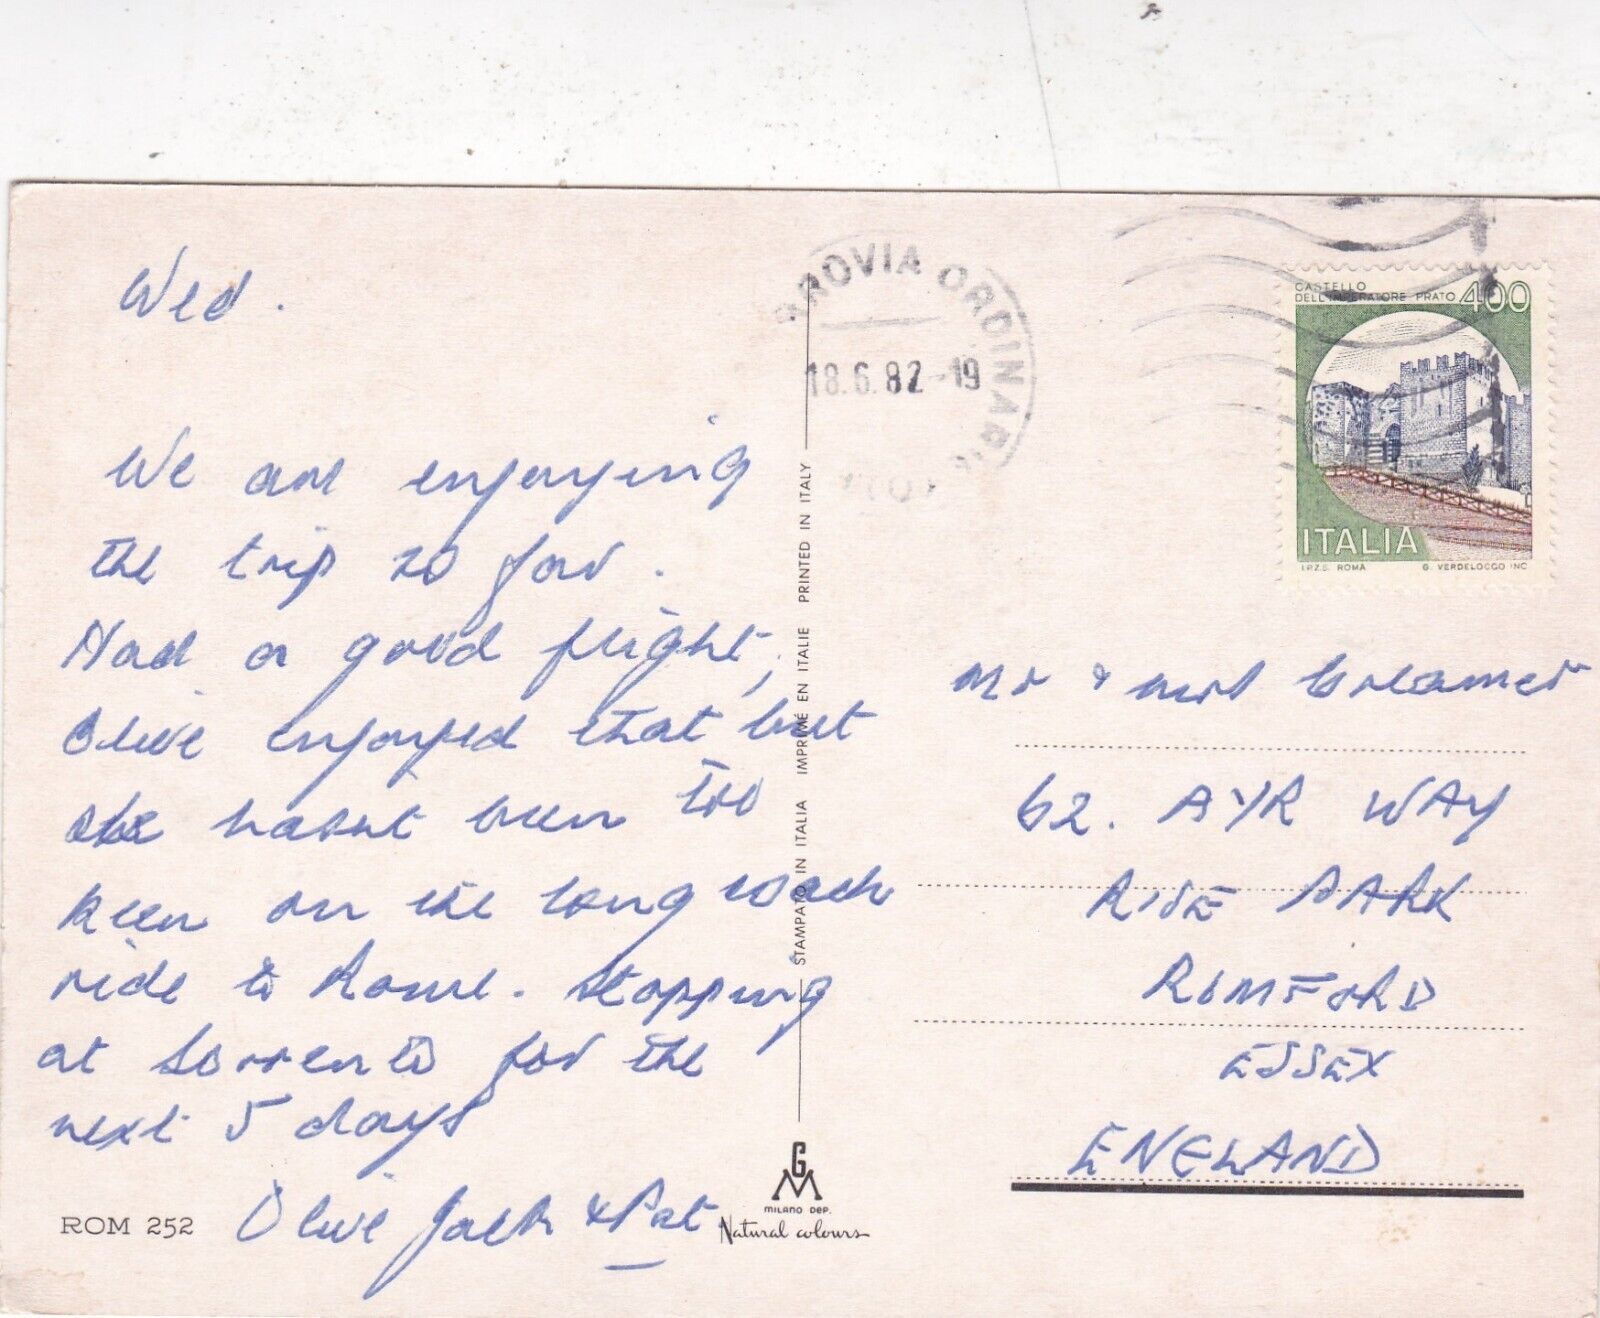 Wed.
We are enjoying
the trip so far.
Had a good flight,
Olive enjoyed that but
she hasnt been too
keen on the long coach
ride to Rome. Stopping
at Sorrento for the
next 5 days
Olive Jack & Pat
ROM 252
STAMPATO IN ITALIA IMPRIMÉ EN ITALIE PRINTED IN ITALY
GM
MILANO DEP.
Natural colours
ROVIA ORDINAR
18.6.82-19
CASTELLO
DELL'IMPERATORE PRATO 400
ITALIA
I.P.Z.S. ROMA G. VERDELOCCO INC
Mr & Mrs
62. AYR WAY
RISE PARK
ROMFORD
ESSEX
ENGLAND